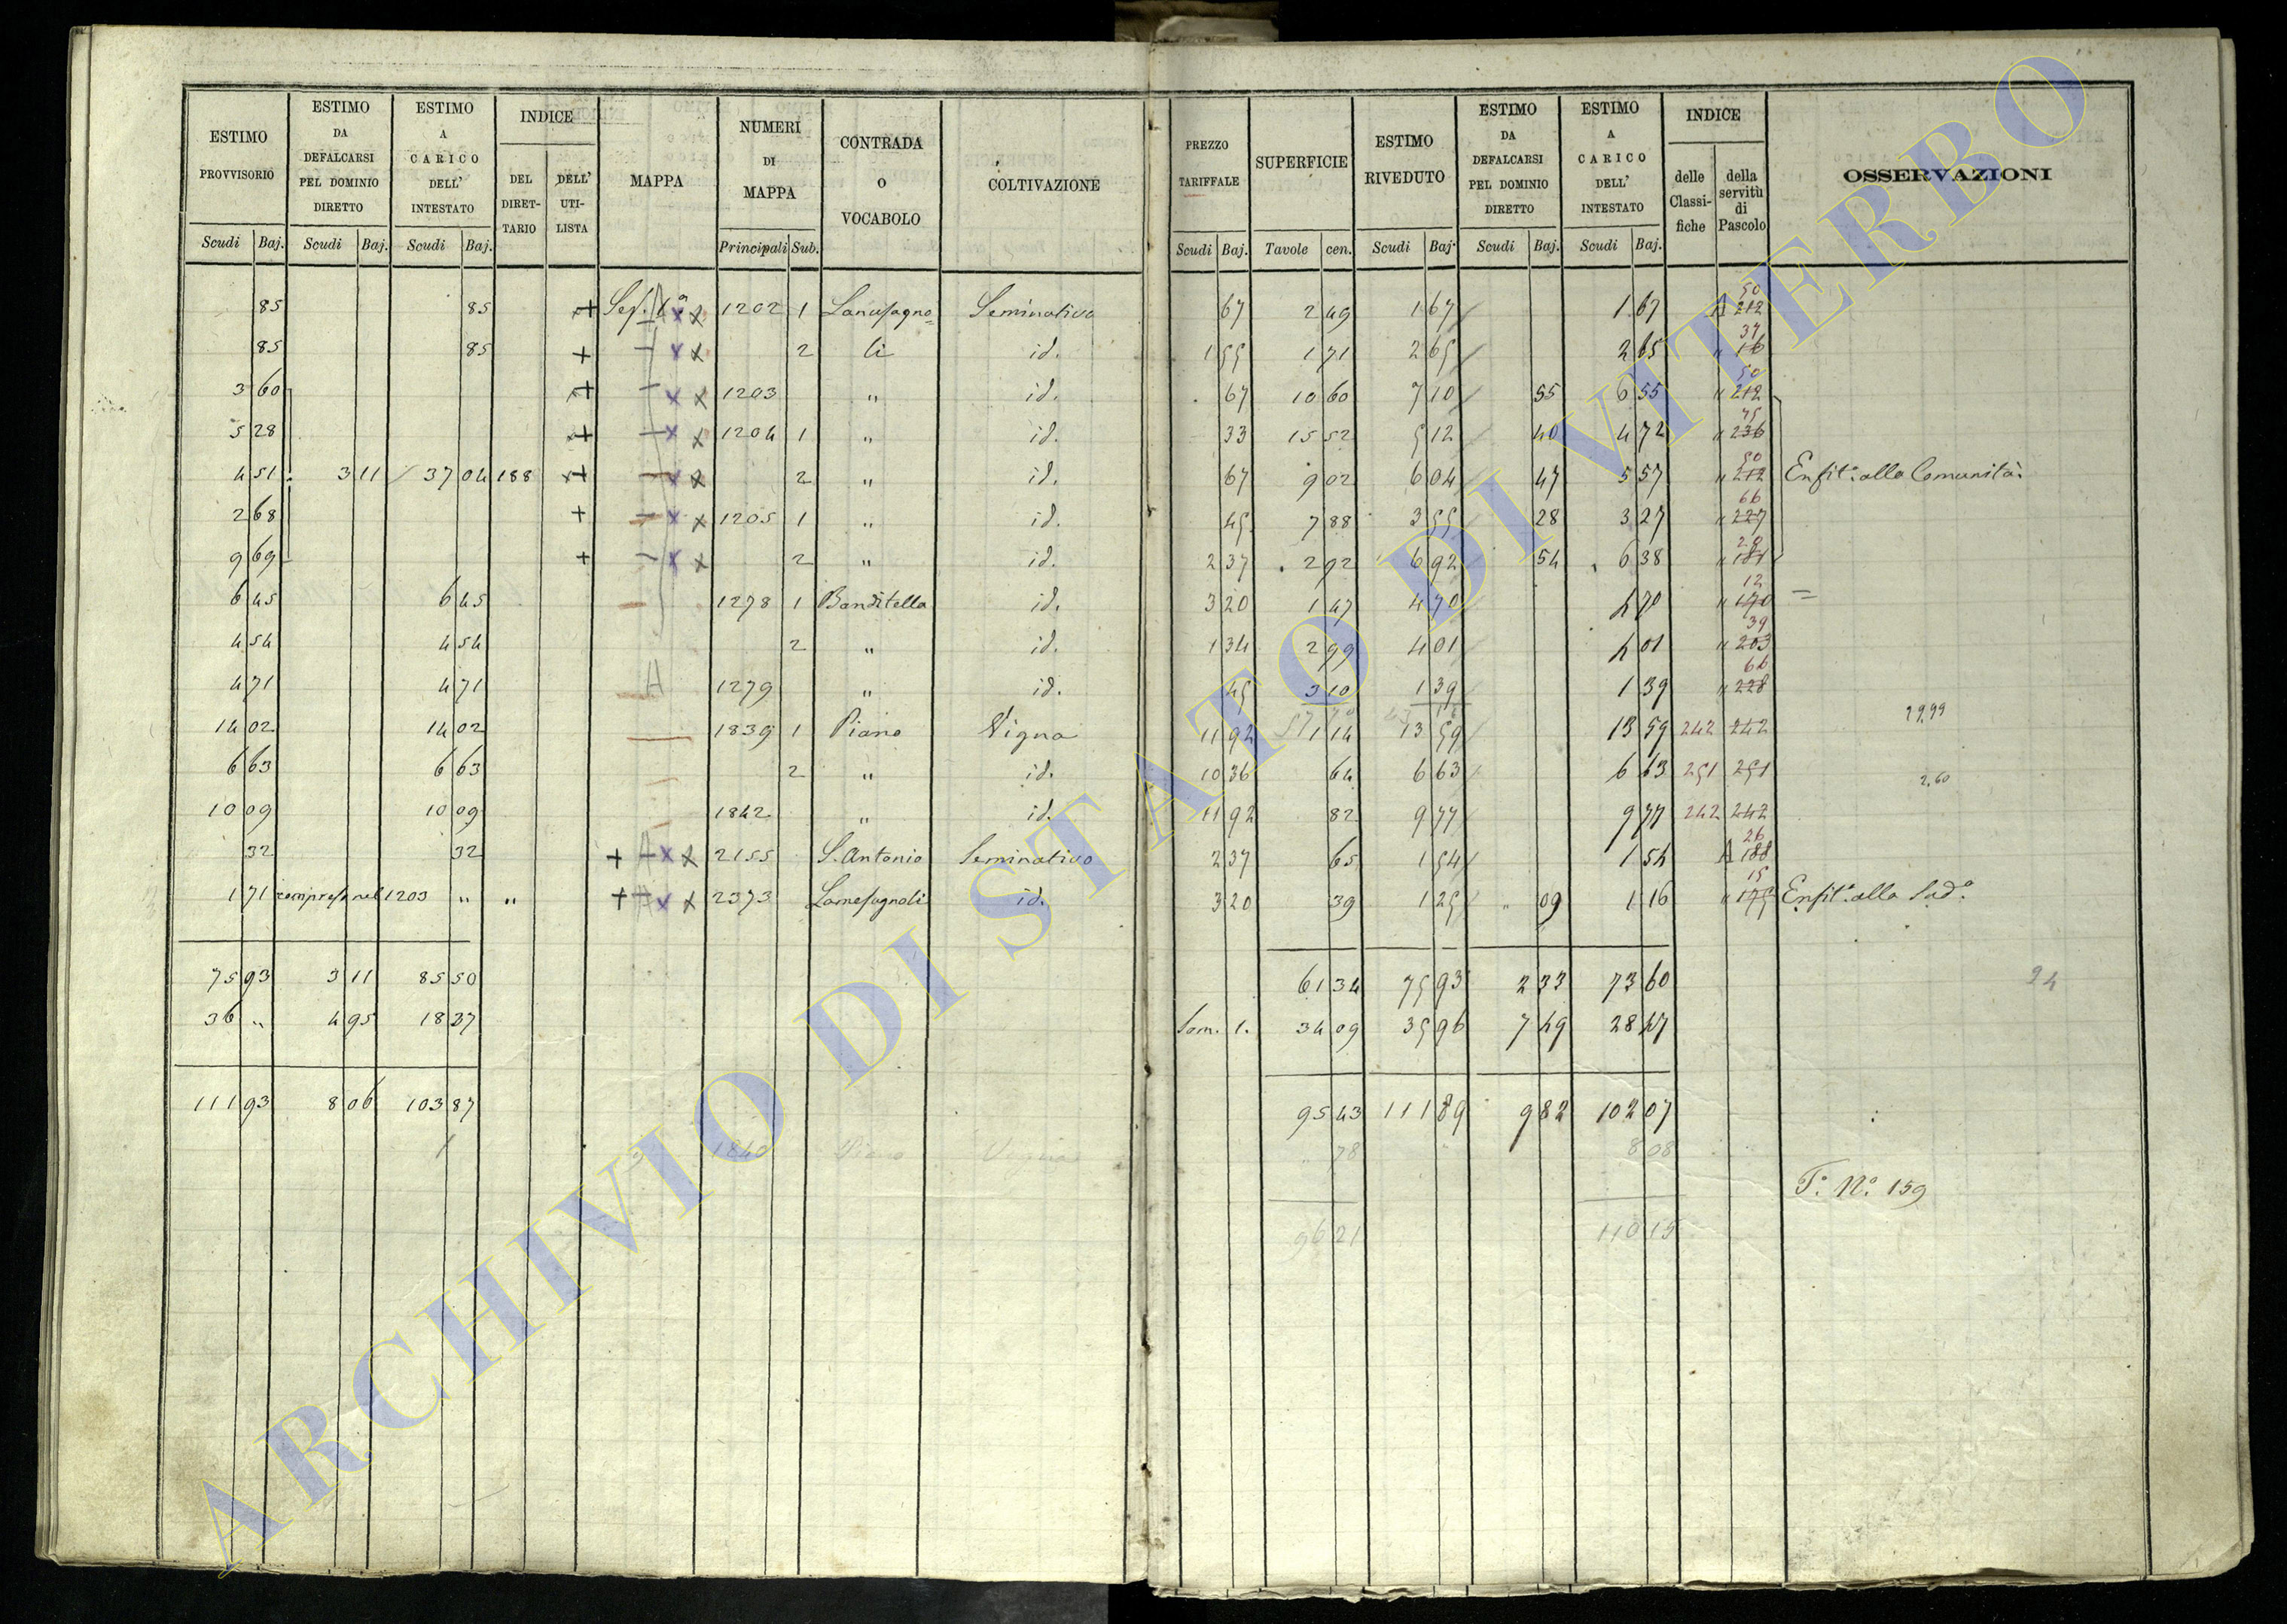 ESTIMO PROVVISORIO | ESTIMO DA DEFALCARSI PEL DOMINIO DIRETTO | ESTIMO A CARICO DELL' INTESTATO | INDICE DEL DIRET-TARIO | DELL' UTI-LISTA | MAPPA | NUMERI DI MAPPA | CONTRADA O VOCABOLO | COLTIVAZIONE | PREZZO TARIFFALE | SUPERFICIE | ESTIMO RIVEDUTO | ESTIMO DA DEFALCARSI PEL DOMINIO DIRETTO | ESTIMO A CARICO DELL' INTESTATO | INDICE delle Classi-fiche | della servitù di Pascolo | OSSERVAZIONI
Scudi Baj. | Scudi Baj. | Scudi Baj. | Principali Sub. | Scudi Baj. | Tavole cen. | Scudi Baj. | Scudi Baj. | Scudi Baj.
85 | 85 | + | Sez. 1ª x x | 1202 | 1 | Lamesagno= | Seminativo | 67 | 2 49 | 1 67 | 1 67 | A 212 50
85 | 85 | + | – x x | 2 | li | id. | 1 55 | 1 71 | 2 65 | 2 65 | " 16 37
3 60 | + | – x x | 1203 | " | id. | 67 | 10 60 | 7 10 | 55 | 6 55 | " 212 50
5 28 | + | – x x | 1204 | 1 | " | id. | 33 | 15 52 | 5 12 | 40 | 4 72 | " 236 75
4 51 | 3 11 | 37 04 | 188 | + | – x x | 2 | " | id. | 67 | 9 02 | 6 04 | 47 | 5 57 | " 212 50 | Enfit. alla Comunità.
2 68 | + | – x x | 1205 | 1 | " | id. | 45 | 7 88 | 3 55 | 28 | 3 27 | " 227 66
9 69 | + | – x x | 2 | " | id. | 2 37 | 2 92 | 6 92 | 54 | 6 38 | " 181 28
6 45 | 6 45 | – | 1278 | 1 | Banditella | id. | 3 20 | 1 47 | 4 70 | 4 70 | " 170 12 | =
4 54 | 4 54 | 2 | " | id. | 1 34 | 2 99 | 4 01 | 4 01 | " 203 39
4 71 | 4 71 | – A | 1279 | " | id. | 45 | 3 10 | 1 39 | 1 39 | " 228 66
14 02 | 14 02 | – | 1839 | 1 | Piano | Vigna | 11 92 | 1 14 | 13 59 | 13 59 | 242 | 242 | 29,99
6 63 | 6 63 | – | 2 | " | id. | 10 36 | 64 | 6 63 | 6 63 | 251 | 251 | 2,60
10 09 | 10 09 | – | 1842 | " | id. | 11 92 | 82 | 9 77 | 9 77 | 242 | 242
32 | 32 | + – x x | 2155 | S. Antonio | Seminativo | 2 37 | 65 | 1 54 | 1 54 | A 188 26
1 71 | compreso nel 1203 | " | " | + – x x | 2373 | Lamesagnoli | id. | 3 20 | 39 | 1 25 | " 09 | 1 16 | " 175 15 | Enfit. alla Sudª
75 93 | 3 11 | 85 50 | 61 34 | 75 93 | 2 33 | 73 60 | 24
36 " | 4 95 | 18 37 | Som. 1. | 34 09 | 35 96 | 7 49 | 28 47
111 93 | 8 06 | 103 87 | 95 43 | 111 89 | 9 82 | 102 07
1840 | Piano | Vigna | 78 | 8 08
Tª Nº 159
96 21 | 110 15
ARCHIVIO DI STATO DI VITERBO